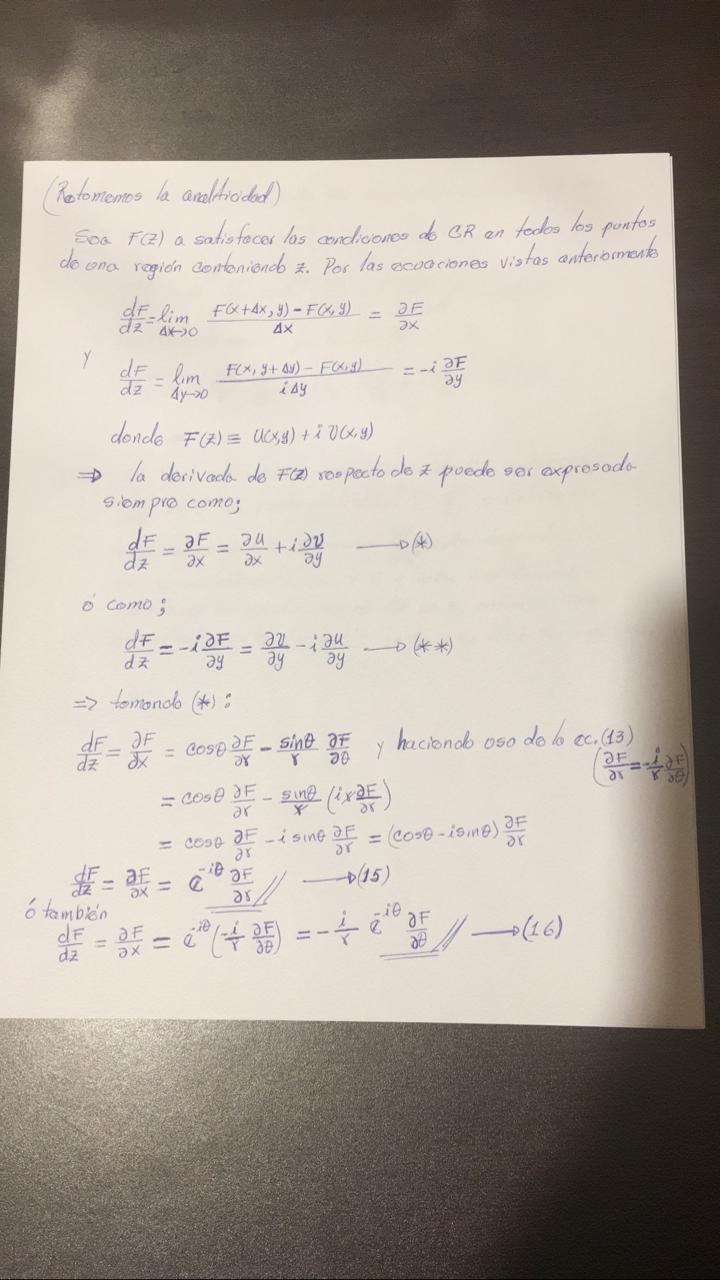 (Retomemos la analiticidad)
Sea F(z) a satisfacer las condiciones de CR en todos los puntos
de una región conteniendo z. Por las ecuaciones vistas anteriormente
dF/dz = lim Δx→0 (F(x+Δx, y) − F(x,y))/Δx = ∂F/∂x
y
dF/dz = lim Δy→0 (F(x, y+Δy) − F(x,y))/(iΔy) = −i ∂F/∂y
donde F(z) ≡ u(x,y) + i v(x,y)
⇒ la derivada de F(z) respecto de z puede ser expresada
siempre como;
dF/dz = ∂F/∂x = ∂u/∂x + i ∂v/∂y → (*)
ó como;
dF/dz = −i ∂F/∂y = ∂v/∂y − i ∂u/∂y → (**)
=> tomando (*):
dF/dz = ∂F/∂x = cosθ ∂F/∂r − sinθ/r ∂F/∂θ y haciendo uso de la ec.(13)
(∂F/∂r = −i/r ∂F/∂θ)
= cosθ ∂F/∂r − sinθ/r (i r ∂F/∂r)
= cosθ ∂F/∂r − i sinθ ∂F/∂r = (cosθ − i sinθ) ∂F/∂r
dF/dz = ∂F/∂x = e^{−iθ} ∂F/∂r // → (15)
ó también
dF/dz = ∂F/∂x = e^{−iθ} (−i/r ∂F/∂θ) = −i/r e^{−iθ} ∂F/∂θ // → (16)